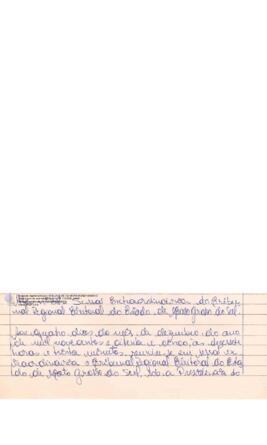 Sessão Extraordinária do Tribu-
nal Regional Eleitoral do Estado de Mato Grosso do Sul.
Aos quatro dias do mês de dezembro do ano
de mil novecentos e oitenta e cinco, às dezessete
horas e trinta minutos, reuniu-se em sessão ex-
traordinária o Tribunal Regional Eleitoral do Esta-
do de Mato Grosso do Sul, sob a Presidência do